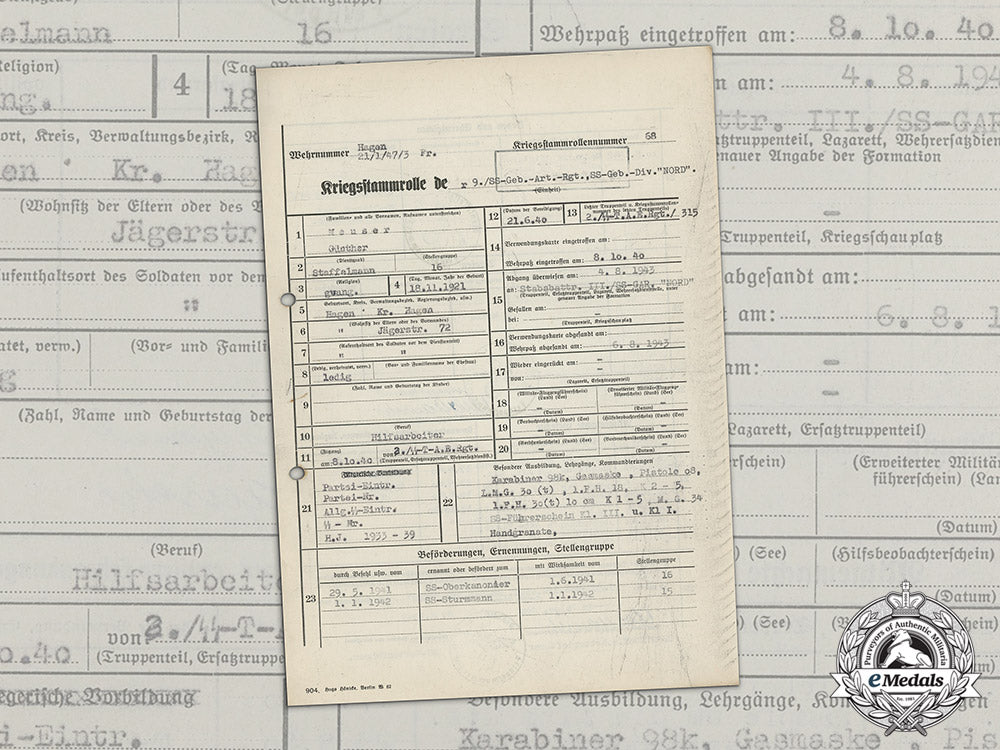 Wehrnummer Hagen 21/1/47/3 Fr.
Kriegsstammrollennummer 68
Kriegsstammrolle de r 9./SS-Geb.-Art.-Rgt.,SS-Geb.-Div."NORD".
(Einheit)
1 (Familien- und alle Vornamen, Rufnamen unterstreichen)
Meuser
Günther
2 (Dienstgrad) (Stellengruppe)
Staffelmann 16
3 (Religion)
evang.
4 (Tag, Monat, Jahr der Geburt)
18.11.1921
5 Geburtsort, Kreis, Verwaltungsbezirk, Regierungsbezirk, usw.)
Hagen Kr. Hagen
6 (Wohnsitz der Eltern oder des Vormundes)
" Jägerstr. 72
7 (Aufenthaltsort des Soldaten vor dem Diensteintritt)
" "
8 (ledig, verheiratet, verw.) (Vor- und Familienname der Ehefrau)
ledig
9 (Zahl, Name und Geburtstag der Kinder)
10 (Beruf)
Hilfsarbeiter
11 am 8.10.40 von 3./SS-T-A.E.Rgt.
(Truppenteil, Ersatztruppenteil, Wehrersatzdienstst.)
12 (Datum der Beendigung)
21.6.40
13
2./SS-T.A.E.Rgt./ 315
14 Verwendungskarte eingetroffen am:
Wehrpaß eingetroffen am: 8. 10. 40
15 Abgang überwiesen am: 4. 8. 1943
an: Stabsbattr. III./SS-GAR. "NORD"
(Truppenteil, Ersatztruppenteil, Lazarett, Wehrersatzdienststelle, unter genauer Angabe der Formation
Gefallen am: -
bei: (Truppenteil, Kriegsschauplatz
16 Verwendungskarte abgesandt am:
Wehrpaß abgesandt am: 6. 8. 1943
17 Wieder eingerückt am: -
von: -
(Lazarett, Ersatztruppenteil)
18 (Militär-Flugzeugführerschein) (Land) (See) (Erweiterter Militär-Flugzeugführerschein) (Land) (See)
- (Datum) - (Datum)
19 (Beobachterschein) (Land) (See) (Hilfsbeobachterschein) (Land) (See)
- (Datum) - (Datum)
20
- (Datum) - (Datum)
21 Fliegerische Vorbildung
Partei-Eintr.
Partei-Nr.
Allg.SS-Eintr.
SS- Nr.
H.J. 1933 - 39
22 Besondere Ausbildung, Lehrgänge, Kommandierungen
Karabiner 98k, Gasmaske , Pistole 08,
L.M.G. 30 (t) , l.F.H. 18, K 2 - 5,
l.F.H. 30(t) 10 cm K 1 - 5, M.G. 34
SS-Führerschein Kl. III. u. Kl I.
Handgranate,
23 Beförderungen, Ernennungen, Stellengruppe
durch Befehl usw. vom ernannt oder befördert zum mit Wirksamkeit vom Stellengruppe
29. 5. 1941 SS-Oberkanonier 1.6.1941 16
1. 1. 1942 SS-Sturmmann 1.1.1942 15
904. Hugo Hänicke, Berlin W 62
Purveyors of Authentic Militaria
eMedals